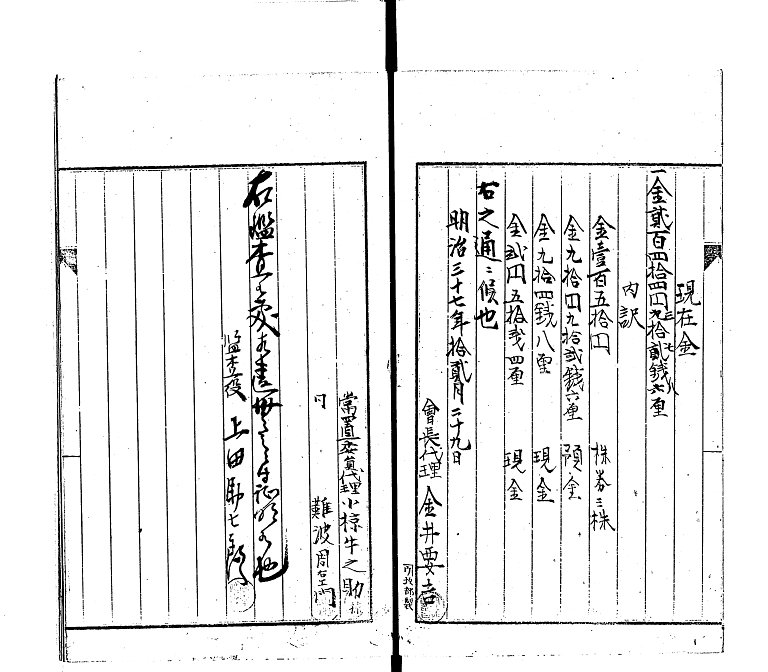 現在金
一金貳百四拾四円九拾貳錢六厘
三七八
内訳
金壹百五拾円 株券三株
金九拾円九拾弐錢六厘 預金
金九拾四錢八厘 現金
金弐円五拾弐四厘 現金
右之通ニ候也
明治三十七年拾貳月二十九日
會長代理 金井要吉
常置委員代理 小椋牛之助
同 難波周左エ門
右監査候處相違無之
監査役 上田助七郎